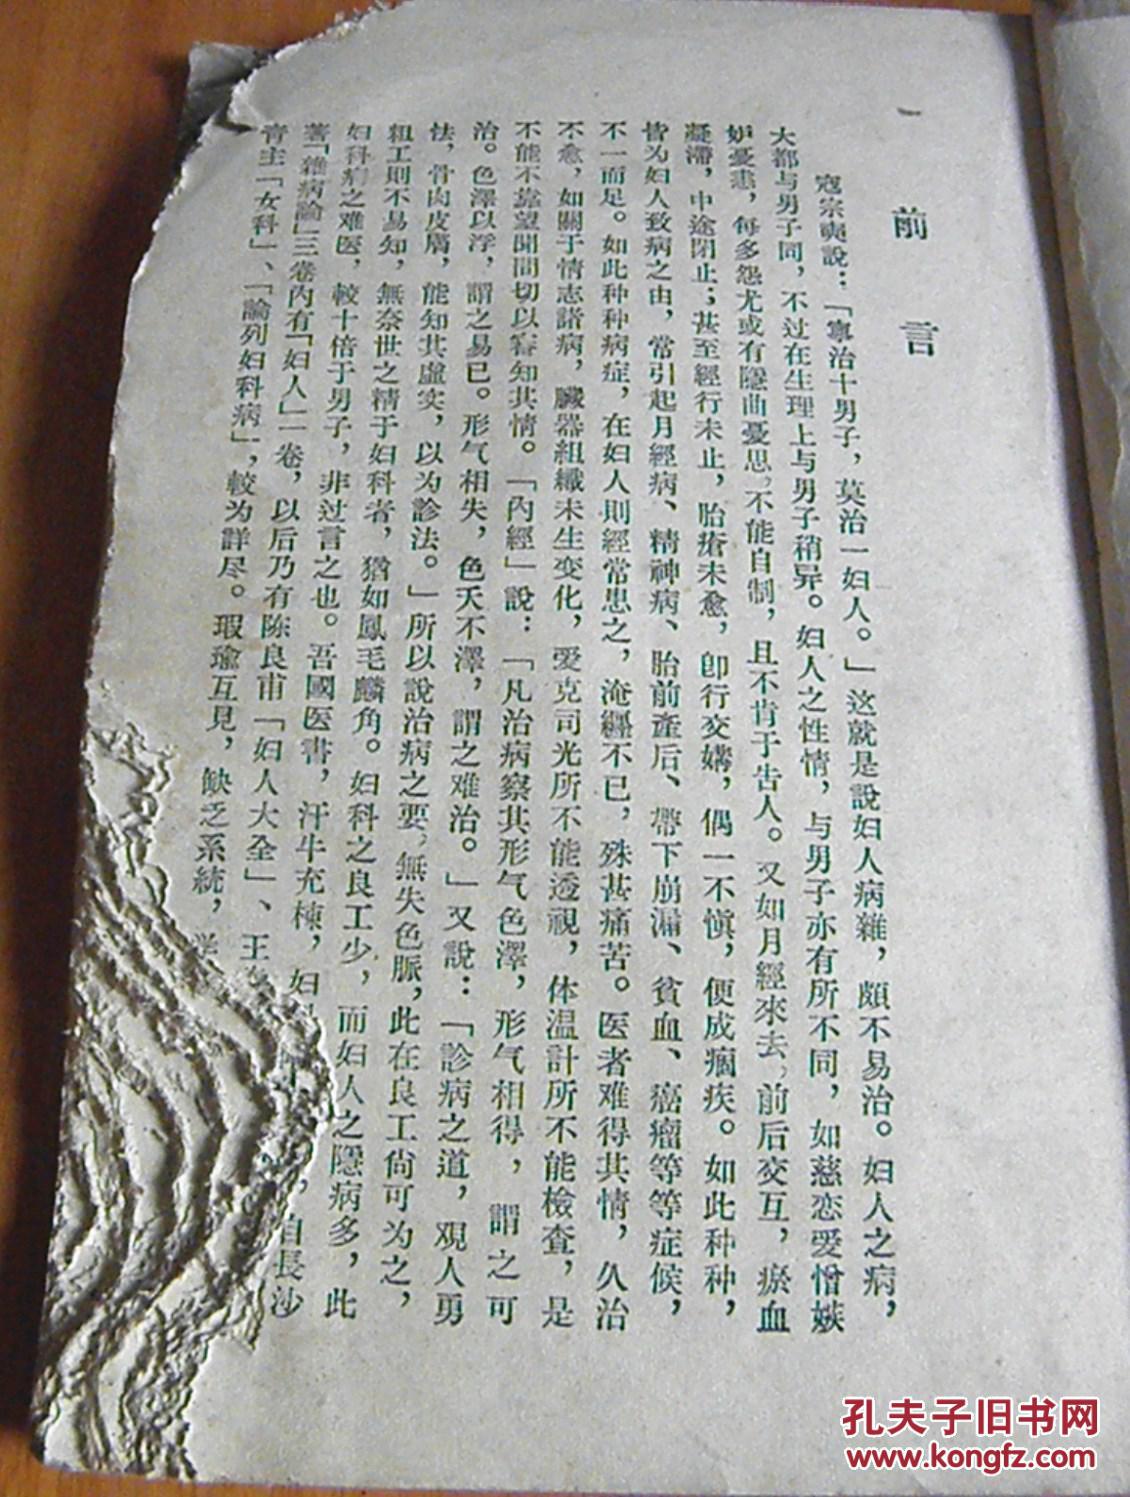 前言
寇宗奭說：「寧治十男子，莫治一妇人。」这就是說妇人病雜，頗不易治。妇人之病，
大都与男子同，不过在生理上与男子稍异。妇人之性情，与男子亦有所不同，如慈恋爱憎嫉
妒憂恚，每多怨尤或有隱曲憂思，不能自制，且不肯于告人。又如月經來去，前后交互，瘀血
凝滯，中途閉止；甚至經行未止，胎瘡未愈，卽行交媾，偶一不慎，便成痼疾。如此种种，
皆为妇人致病之由，常引起月經病、精神病、胎前產后、帶下崩漏、貧血、癌瘤等等症候，
不一而足。如此种种病症，在妇人則經常患之，淹纏不已，殊甚痛苦。医者难得其情，久治
不愈，如關于情志諸病，臟器組織未生变化，爱克司光所不能透視，体温計所不能檢查，是
不能不靠望聞問切以審知其情。「內經」說：「凡治病察其形气色澤，形气相得，謂之可
治。色澤以浮，謂之易已。形气相失，色夭不澤，謂之难治。」又說：「診病之道，观人勇
怯，骨肉皮膚，能知其虛实，以为診法。」所以說治病之要，無失色脈，此在良工尙可为之，
粗工則不易知，無奈世之精于妇科者，猶如鳳毛麟角。妇科之良工少，而妇人之隱病多，此
妇科病之难医，較十倍于男子，非过言之也。吾國医書，汗牛充棟，妇 自長沙
著「雜病論」三卷內有「妇人」一卷，以后乃有陈良甫「妇人大全」、王
青主「女科」、「論列妇科病」，較为詳尽。瑕瑜互見，缺乏系統，
孔夫子旧书网
www.kongfz.com